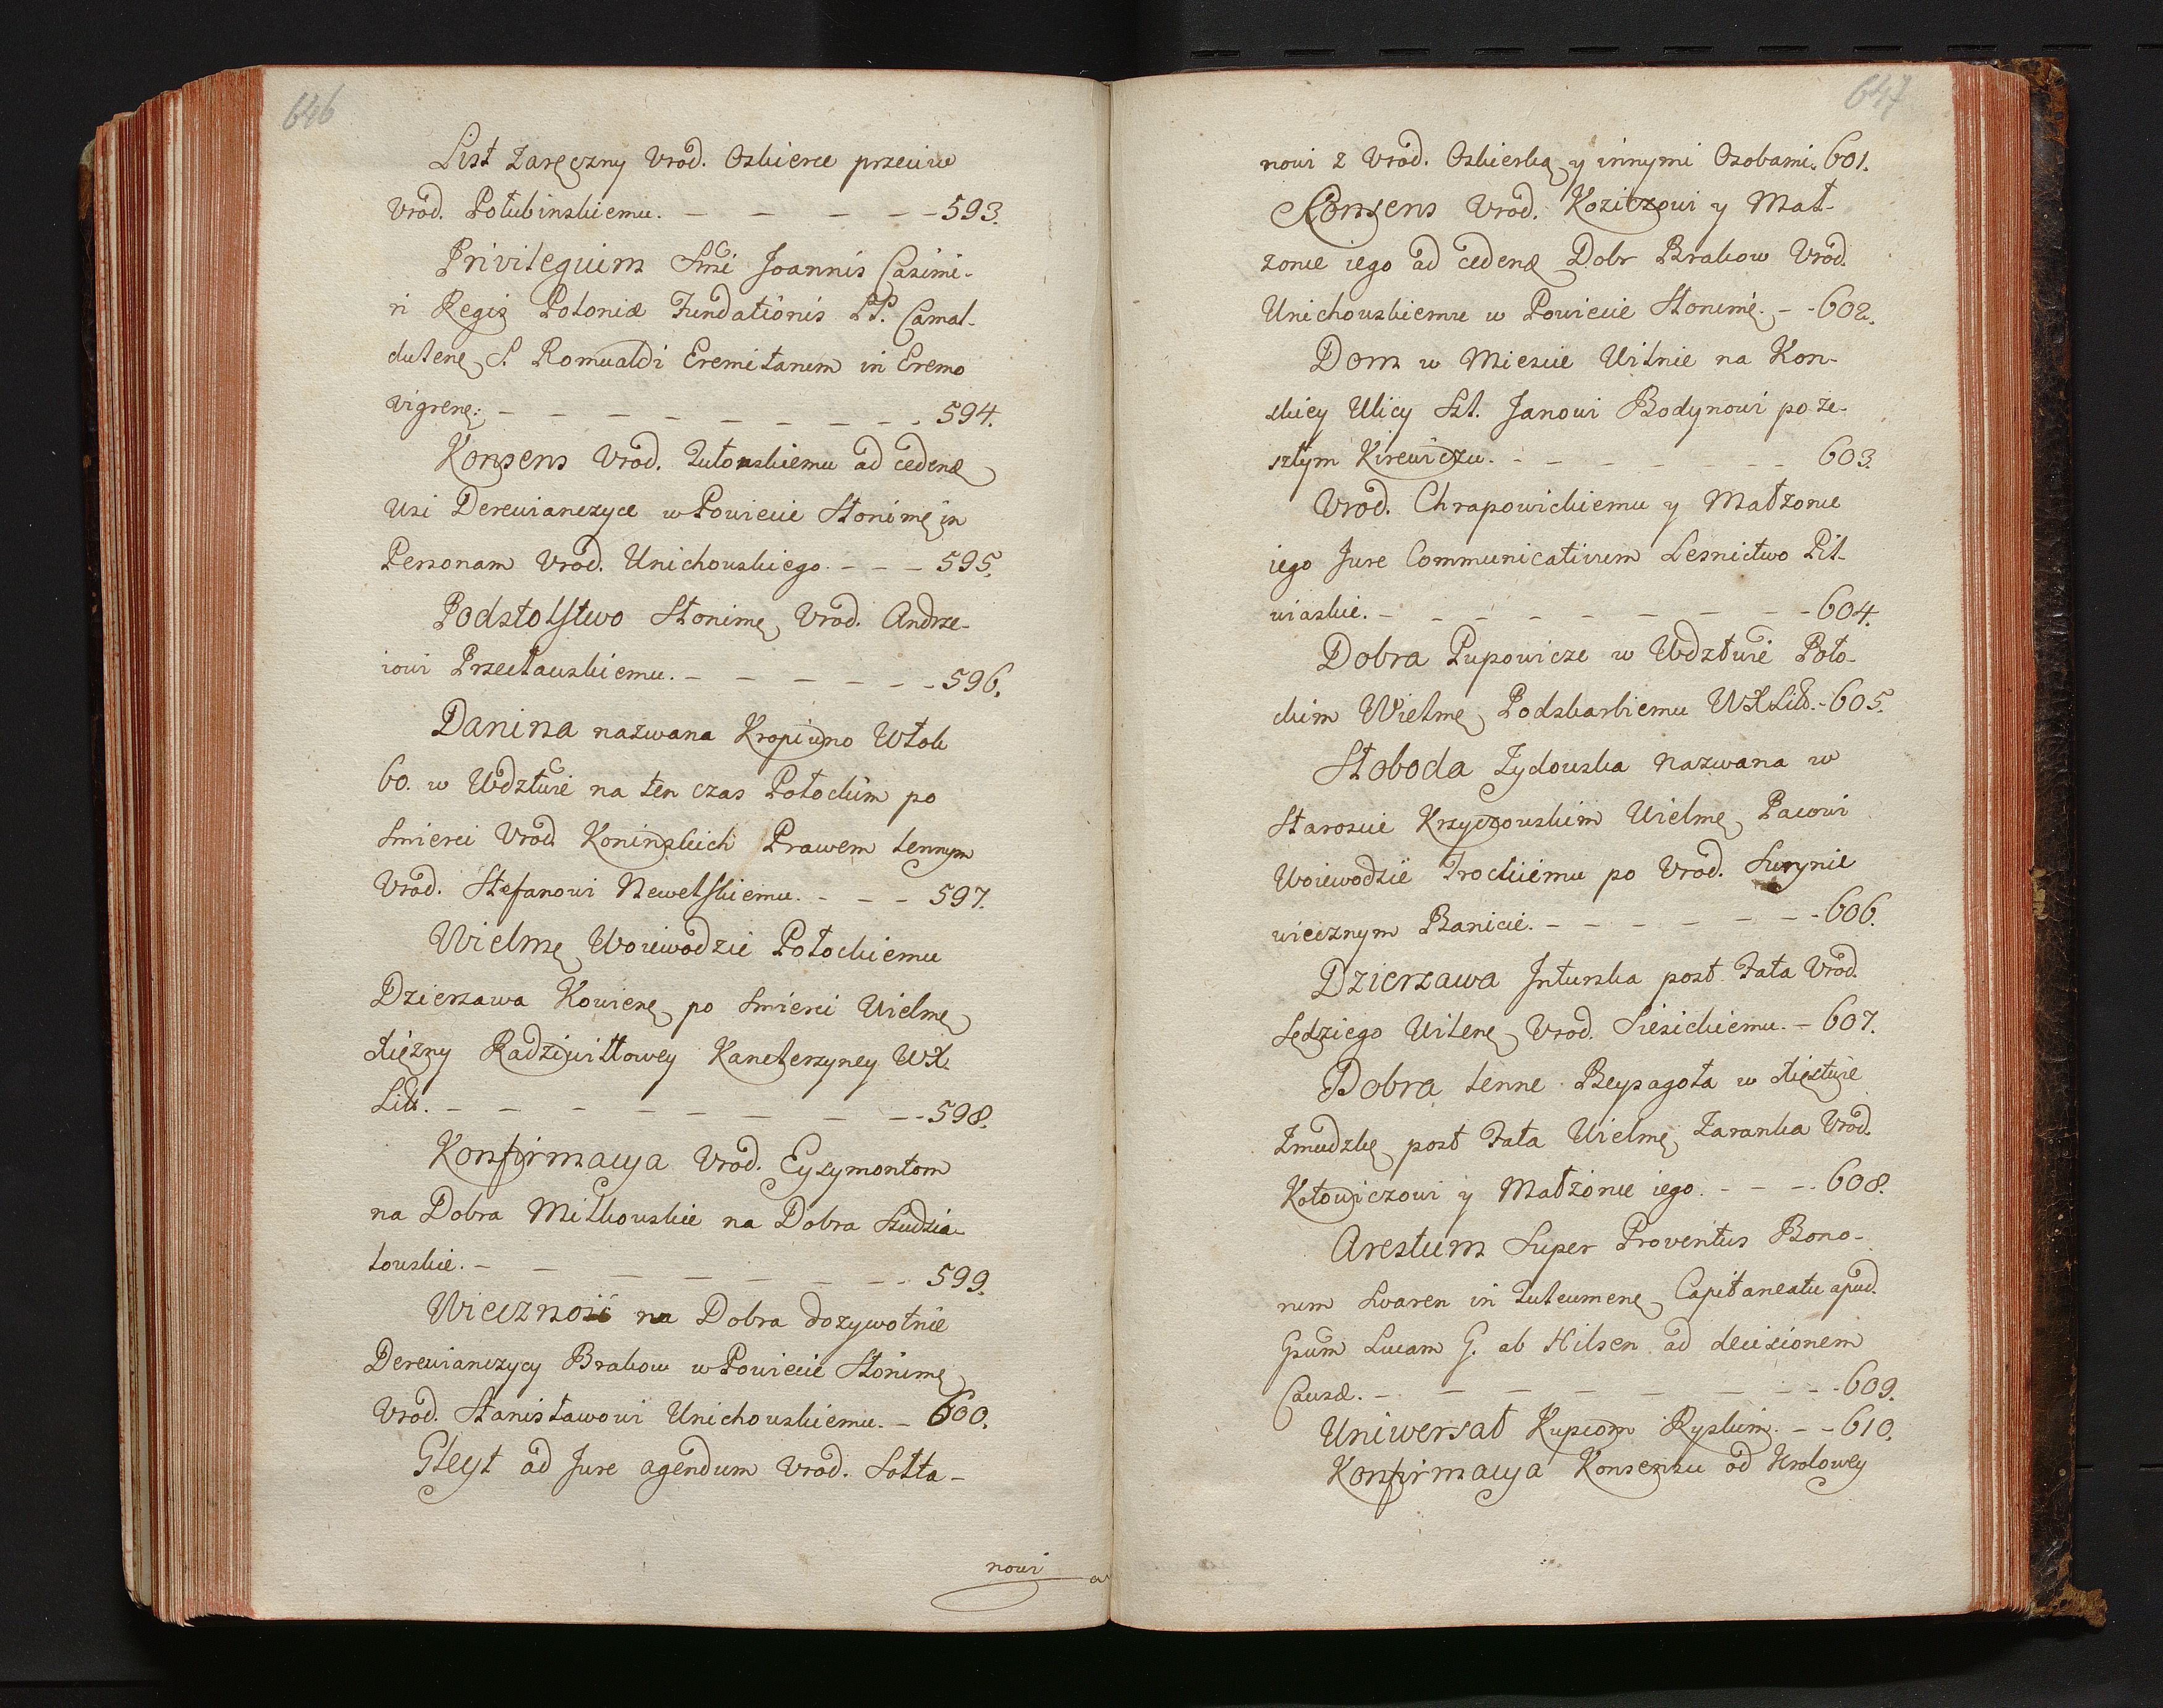 646
List Zaręczny Urod. Oskierce przeciw
Urod. Połubinskiemu. — — — — — 593.
Privilegium Smi Joannis Casimi-
ri Regis Poloniæ Fundationis PP. Camal-
dulene S. Romualdi Eremitarum in Eremo
Vigrene: — — — — — — — — 594.
Konsens Urod. Lutonskiemu ad cedenæ
Wsi Derewianczyce w Powiecie Słonime in
Personam Urod. Unichowskiego. — — — 595.
Podstolstwo Słonime Urod. Andrze-
iowi Przecławskiemu. — — — — — — 596.
Danina nazwana Kropiwno Włok
60. w Wdztwie na ten czas Połockim po
Smierci Urod. Koninskich Prawem lennym
Urod. Stefanowi Newelskiemu. — — — 597.
Wielme Woiewodzie Połockiemu
Dzierzawa Kowiene po Smierci Wielme
Xiężny Radziwiłłowey Kanclerzyney WX.
Litt. — — — — — — — — 598.
Konfirmacya Urod. Eysymontom
na Dobra Milkowskie na Dobra Szudzia-
łowskie. — — — — — — — — 599.
Wieczność na Dobra dozywotnie
Derewianczycy Brakow w Powiecie Słonime
Urod. Stanisławowi Unichowskiemu. — 600.
Gleyt ad Jure agendum Urod. Sołta-
nowi
647
nowi z Urod. Oskierką y innymi Osobami. 601.
Konsens Urod. Koziełowi y Mał-
zonce iego ad cedenæ Dobr Brakow Urod.
Unichowskiemu w Powiecie Słonime. — 602.
Dom w Miescie Wilnie na Kon-
skiey Ulicy Szl. Janowi Bodynowi po ze-
szłym Kirewiczu. — — — — — — 603.
Urod. Chrapowickiemu y Małzonce
iego Jure Communicativum Lesnictwo Pił-
wiaskie. — — — — — — — — 604.
Dobra Pupowicze w Wdztwie Poło-
ckim Wielme Podskarbiemu WXLitt. — 605.
Słoboda Zydowska nazwana w
Staroscie Krzyczowskim Wielme Pacowi
Woiewodzie Trockiemu po Urod. Surynie
wiecznym Banicie. — — — — — — 606.
Dzierzawa Inturska post Fata Urod.
Sędziego Wilene Urod. Siesickiemu. — 607.
Dobra lenne Beysagoła w Xięstwie
Zmudzke post Fata Wielme Zaranka Urod.
Kotowiczowi y Małzonce iego. — — — 608.
Arestum Super Proventus Bono-
rum Swaren in Luteumene Capitaneatu apud
Gsum Lucam G. ab Hilsen ad decisionem
Causæ. — — — — — — — — 609.
Uniwersał Kupcom Ryskim. — — 610.
Konfirmacya Konsensu od Krolowey